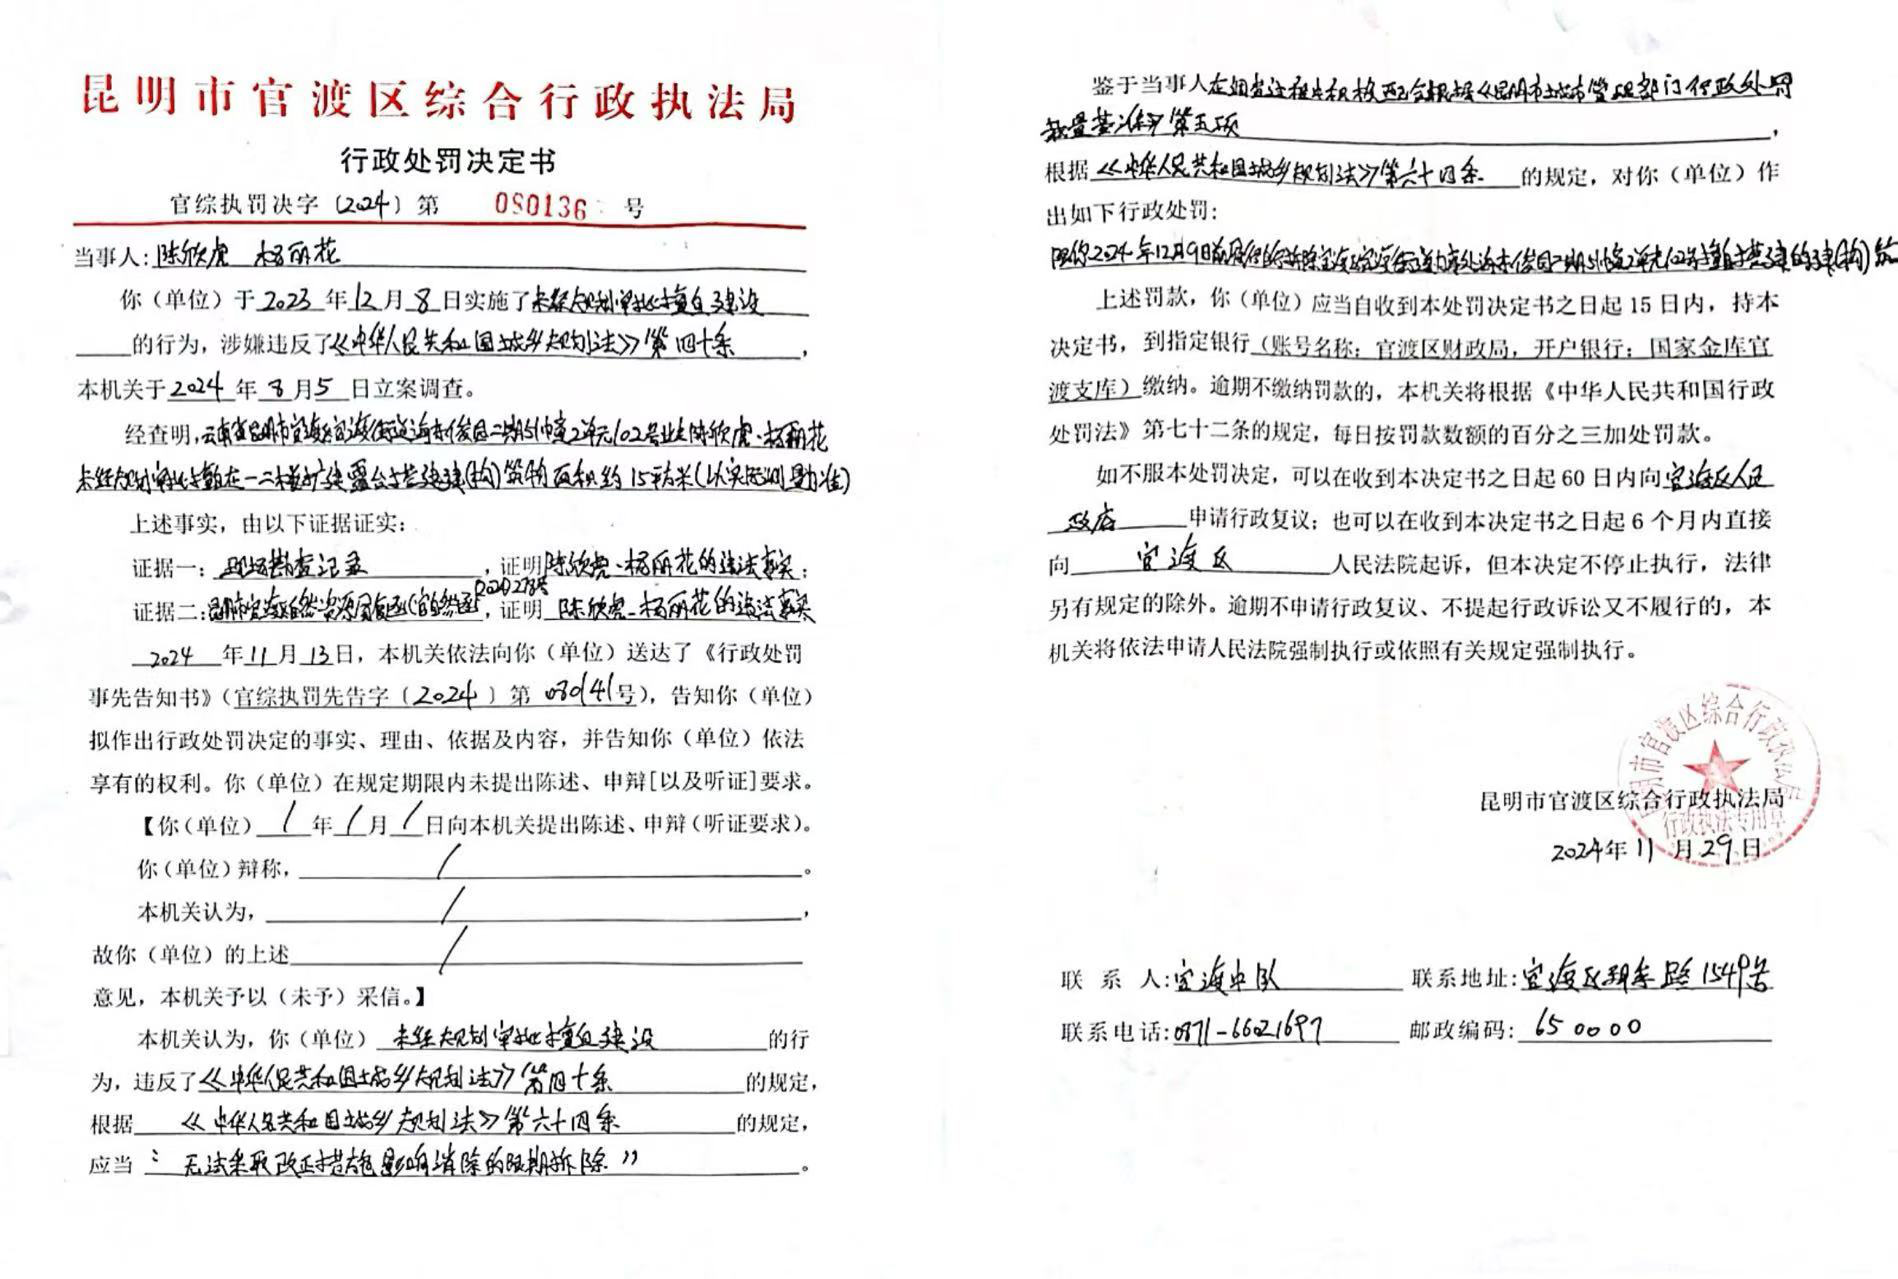 昆明市官渡区综合行政执法局
行政处罚决定书
官综执罚决字〔2024〕第 080136 号
当事人:陈欣虎 杨丽花
你(单位)于2023年12月8日实施了未经规划审批擅自建设
的行为,涉嫌违反了《中华人民共和国城乡规划法》第四十条,
本机关于2024年8月5日立案调查。
经查明,云南省昆明市官渡区官渡街道 俊园二期 幢2单元102号业主陈欣虎、杨丽花
未经规划审批擅在一二楼扩建露台搭建建(构)筑物面积约15平方米(以实际测量为准)
上述事实,由以下证据证实:
证据一:现场勘查记录,证明陈欣虎、杨丽花的违法事实;
证据二:昆明市官渡区自然资源局复函(官自然函,证明 陈欣虎、杨丽花的违法事实
2024年11月13日,本机关依法向你(单位)送达了《行政处罚
事先告知书》(官综执罚先告字〔2024〕第080141号),告知你(单位)
拟作出行政处罚决定的事实、理由、依据及内容,并告知你(单位)依法
享有的权利。你(单位)在规定期限内未提出陈述、申辩[以及听证]要求。
【你(单位) / 年 / 月 / 日向本机关提出陈述、申辩(听证要求)。
你(单位)辩称, / 。
本机关认为, / ,
故你(单位)的上述 /
意见,本机关予以(未予)采信。】
本机关认为,你(单位)未经规划审批擅自建设的行
为,违反了《中华人民共和国城乡规划法》第四十条的规定,
根据《中华人民共和国城乡规划法》第六十四条的规定,
应当:“无法采取改正措施消除影响的限期拆除”。
鉴于当事人在调查过程中积极配合根据《昆明市城市管理部门行政处罚
裁量基准》第五项,
根据《中华人民共和国城乡规划法》第六十四条的规定,对你(单位)作
出如下行政处罚:
限你2024年12月9日前 拆除官渡区官渡街道办事处 俊园二期 幢2单元102号擅自搭建的建(构)筑
上述罚款,你(单位)应当自收到本处罚决定书之日起15日内,持本
决定书,到指定银行(账号名称:官渡区财政局,开户银行:国家金库官
渡支库)缴纳。逾期不缴纳罚款的,本机关将根据《中华人民共和国行政
处罚法》第七十二条的规定,每日按罚款数额的百分之三加处罚款。
如不服本处罚决定,可以在收到本决定书之日起60日内向官渡区人民
政府申请行政复议;也可以在收到本决定书之日起6个月内直接
向官渡区人民法院起诉,但本决定不停止执行,法律
另有规定的除外。逾期不申请行政复议、不提起行政诉讼又不履行的,本
机关将依法申请人民法院强制执行或依照有关规定强制执行。
昆明市官渡区综合行政执法局
行政执法专用章
昆明市官渡区综合行政执法局
2024年11月29日
联系人:官渡中队 联系地址:官渡区 路1549号
联系电话:0871-66021697 邮政编码:650000